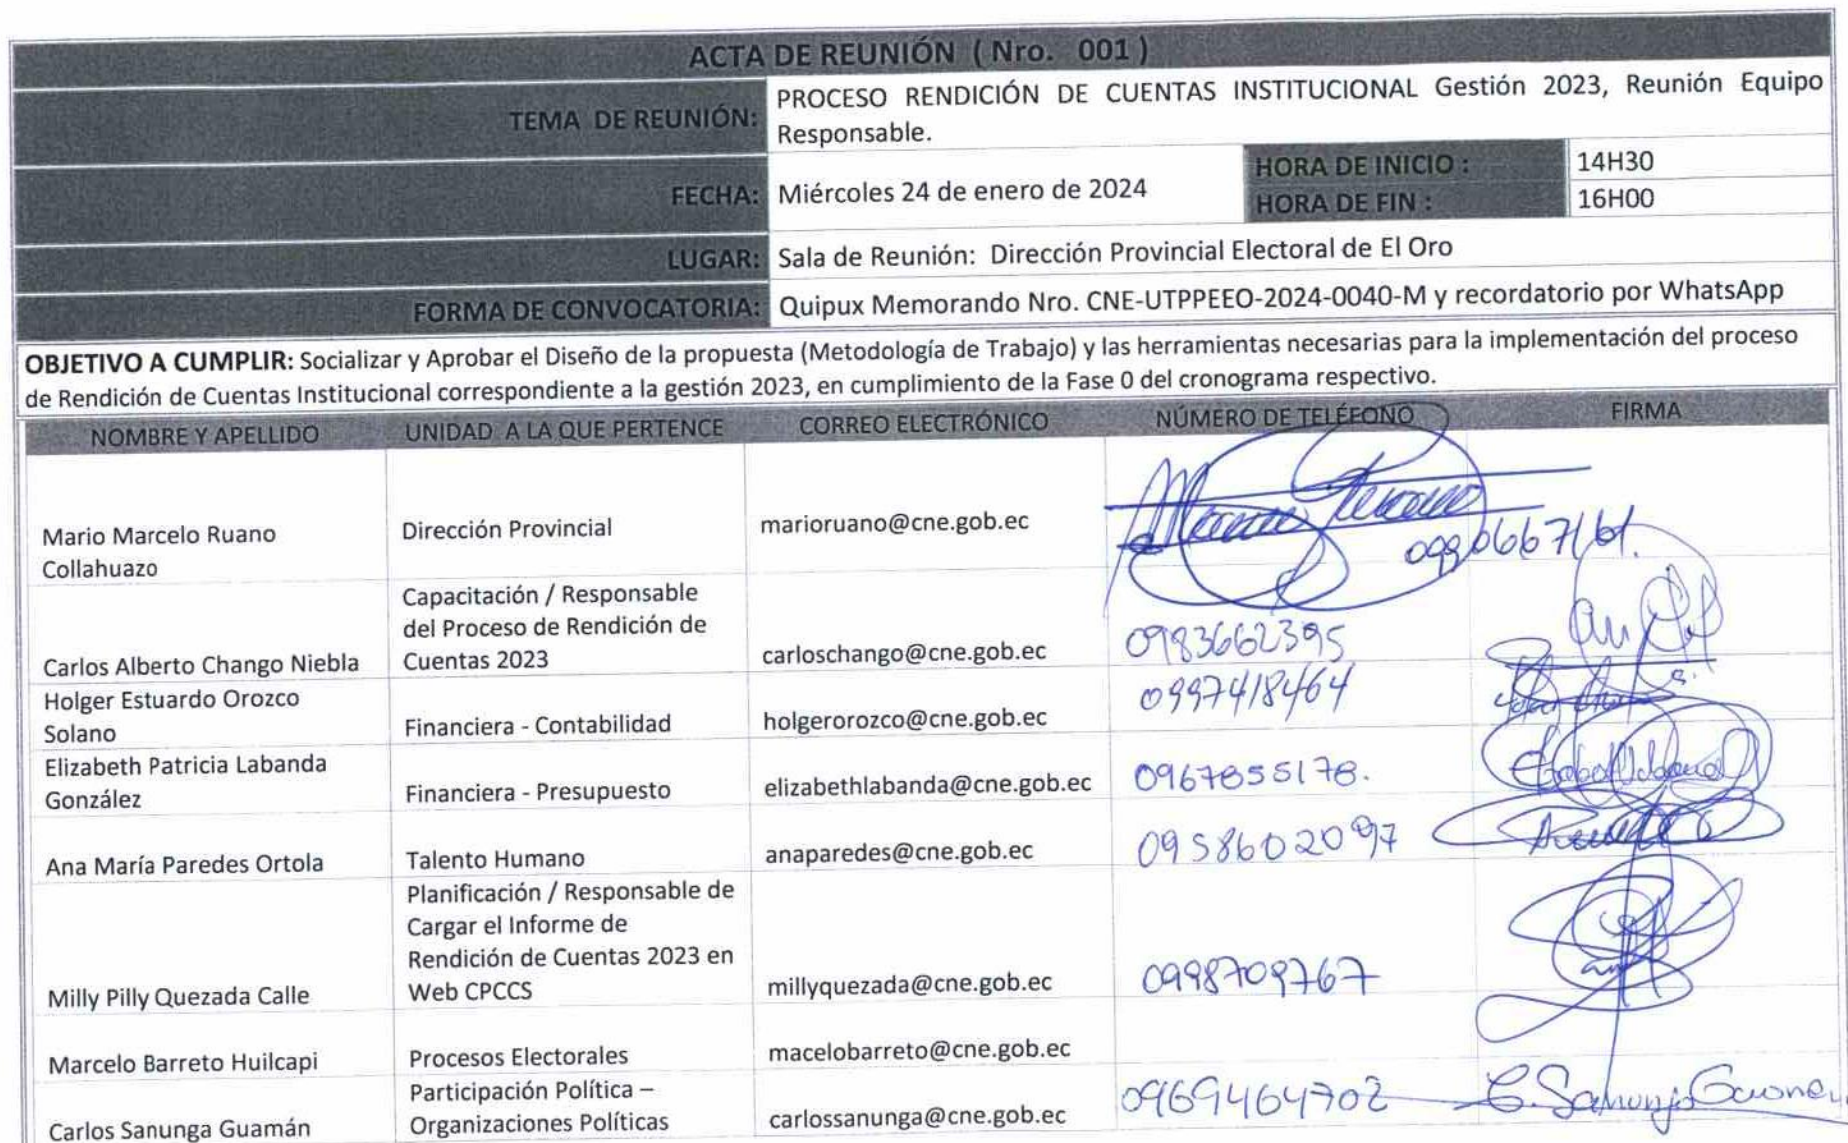 ACTA DE REUNIÓN ( Nro. 001 )
TEMA DE REUNIÓN:
PROCESO RENDICIÓN DE CUENTAS INSTITUCIONAL Gestión 2023, Reunión Equipo
Responsable.
FECHA:
Miércoles 24 de enero de 2024
HORA DE INICIO :
14H30
HORA DE FIN :
16H00
LUGAR:
Sala de Reunión: Dirección Provincial Electoral de El Oro
FORMA DE CONVOCATORIA:
Quipux Memorando Nro. CNE-UTPPEEO-2024-0040-M y recordatorio por WhatsApp
OBJETIVO A CUMPLIR: Socializar y Aprobar el Diseño de la propuesta (Metodología de Trabajo) y las herramientas necesarias para la implementación del proceso
de Rendición de Cuentas Institucional correspondiente a la gestión 2023, en cumplimiento de la Fase 0 del cronograma respectivo.
NOMBRE Y APELLIDO
UNIDAD A LA QUE PERTENCE
CORREO ELECTRÓNICO
NÚMERO DE TELÉFONO
FIRMA
Mario Marcelo Ruano
Collahuazo
Dirección Provincial
marioruano@cne.gob.ec
Carlos Alberto Chango Niebla
Capacitación / Responsable
del Proceso de Rendición de
Cuentas 2023
carloschango@cne.gob.ec
0983662395
Holger Estuardo Orozco
Solano
Financiera - Contabilidad
holgerorozco@cne.gob.ec
0997418464
Elizabeth Patricia Labanda
González
Financiera - Presupuesto
elizabethlabanda@cne.gob.ec
0967855178.
Ana María Paredes Ortola
Talento Humano
anaparedes@cne.gob.ec
0958602097
Milly Pilly Quezada Calle
Planificación / Responsable de
Cargar el Informe de
Rendición de Cuentas 2023 en
Web CPCCS
millyquezada@cne.gob.ec
0998709767
Marcelo Barreto Huilcapi
Procesos Electorales
macelobarreto@cne.gob.ec
Carlos Sanunga Guamán
Participación Política –
Organizaciones Políticas
carlossanunga@cne.gob.ec
0969464702